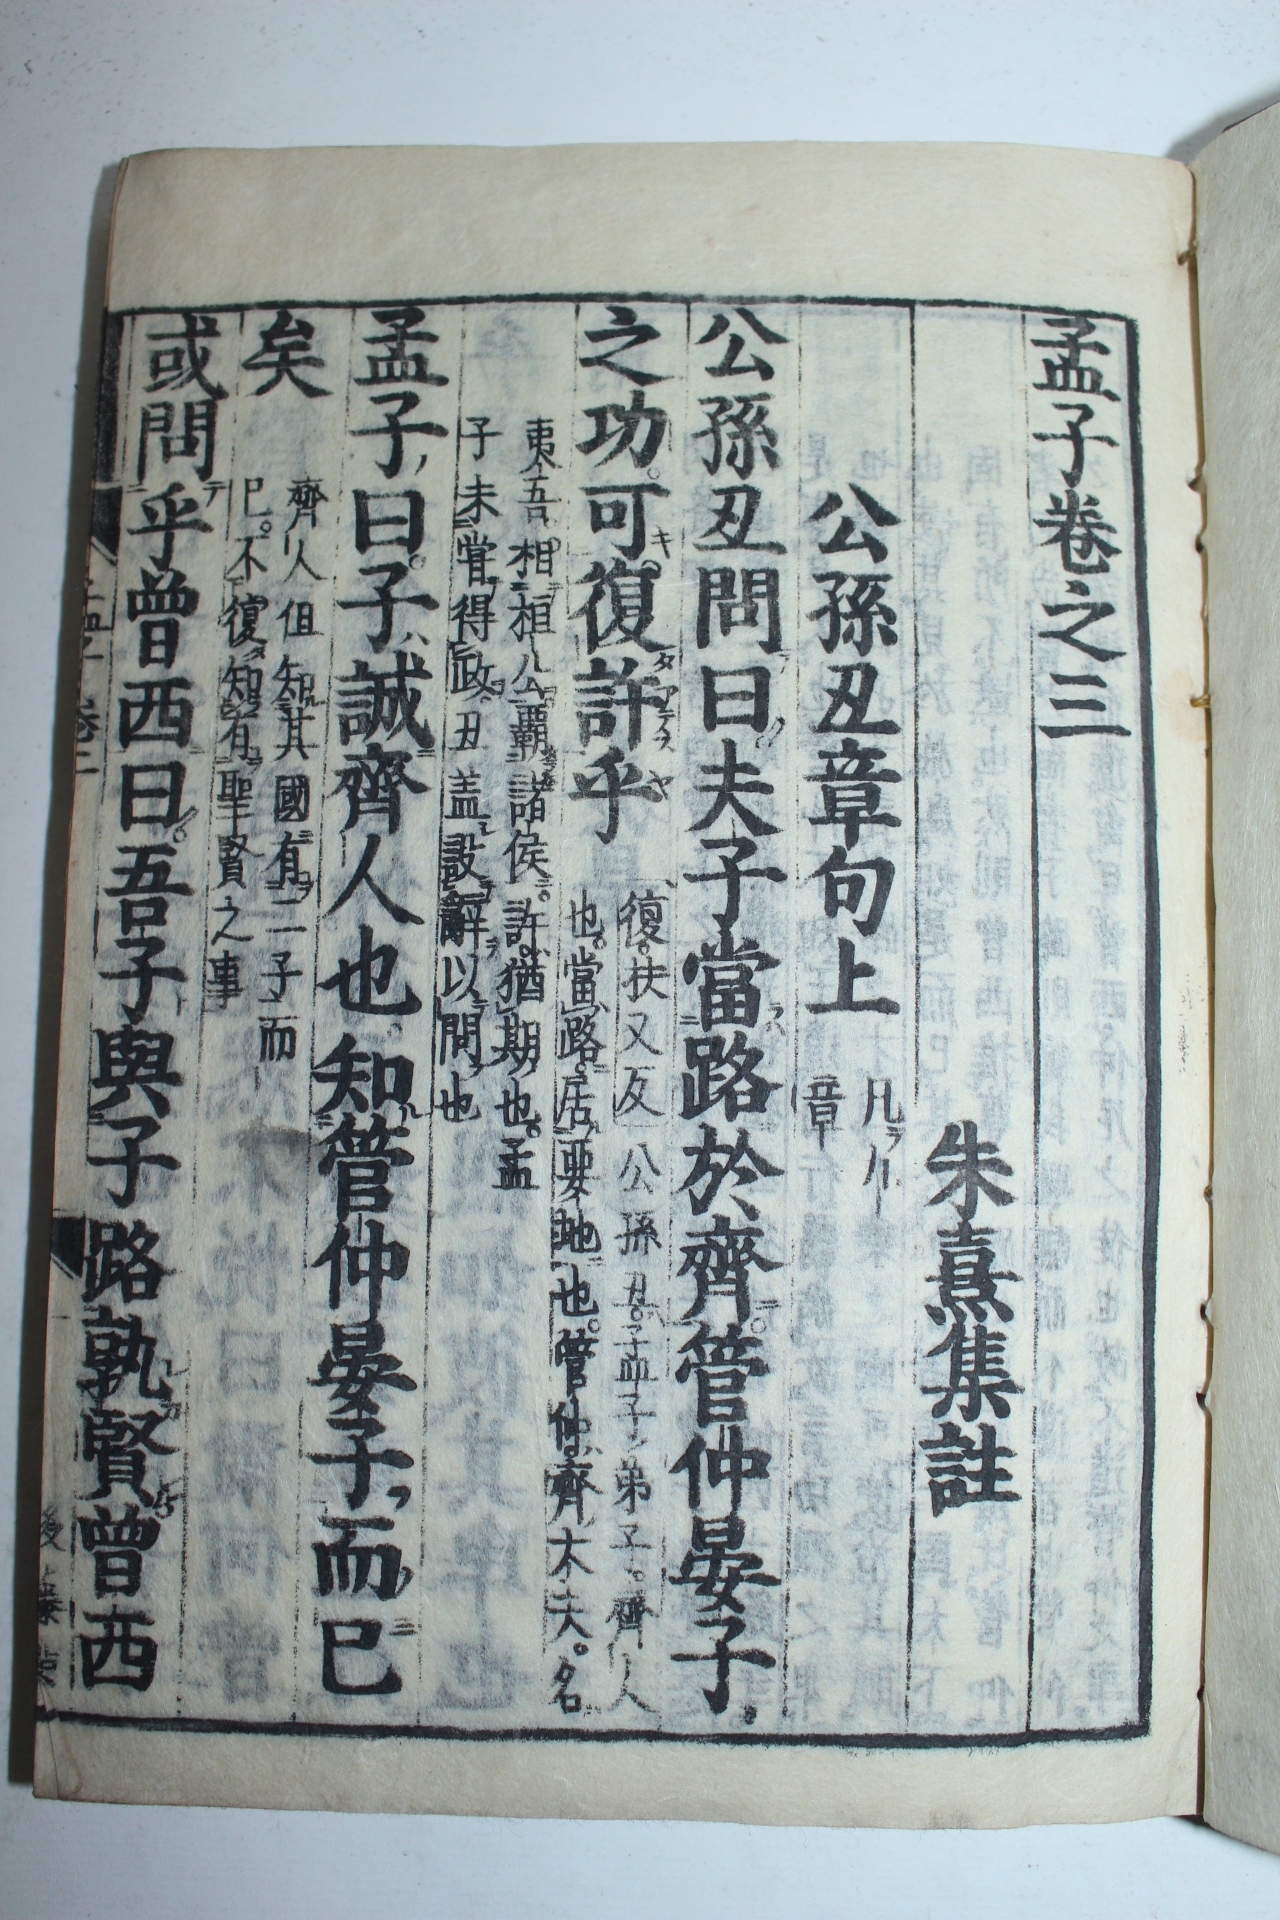 孟子卷之三
朱熹集註
公孫丑章句上
凡九
章
公孫丑問曰夫子當路於齊管仲晏子
之功可復許乎
復扶又反公孫丑孟子弟子齊人
也當路居要地也管仲齊大夫名
夷吾相桓公霸諸侯許猶期也孟
子未嘗得政丑蓋設辭以問也
孟子曰子誠齊人也知管仲晏子而已
矣
齊人但知其國有二子而
已不復知有聖賢之事
或問乎曾西曰吾子與子路孰賢曾西
後藤點